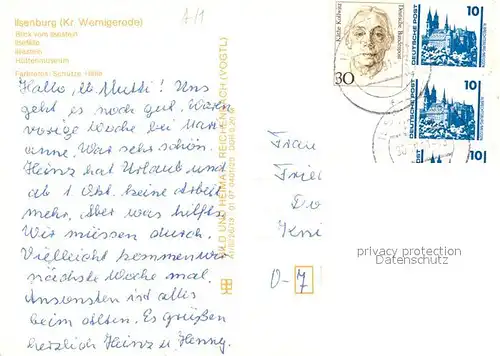 A/1
Ilsenburg (Kr. Wernigerode)
Blick vom Ilsestein
Ilsefälle
Ilsestein
Hüttenmuseum
Hallo, lb. Mutti! Uns
geht es noch gut. Waren
vorige Woche bei Mari
anne. War sehr schön.
Heinz hat Urlaub und
ab 1. Okt. keine Arbeit
mehr. Aber was hilfts
Wir müssen durch.
Vielleicht kommen wir
nächste Woche mal.
Ansonsten ist alles
beim alten. Es grüßen
herzlich Heinz u. Henny.
BILD UND HEIMAT REICHENBACH (VOGTL)
Käthe Kollwitz
Deutsche Bundespost
30
DEUTSCHE POST
10
DEUTSCHE POST
10
10
Frau
Fried
Do
O-7
privacy protection
Datenschutz